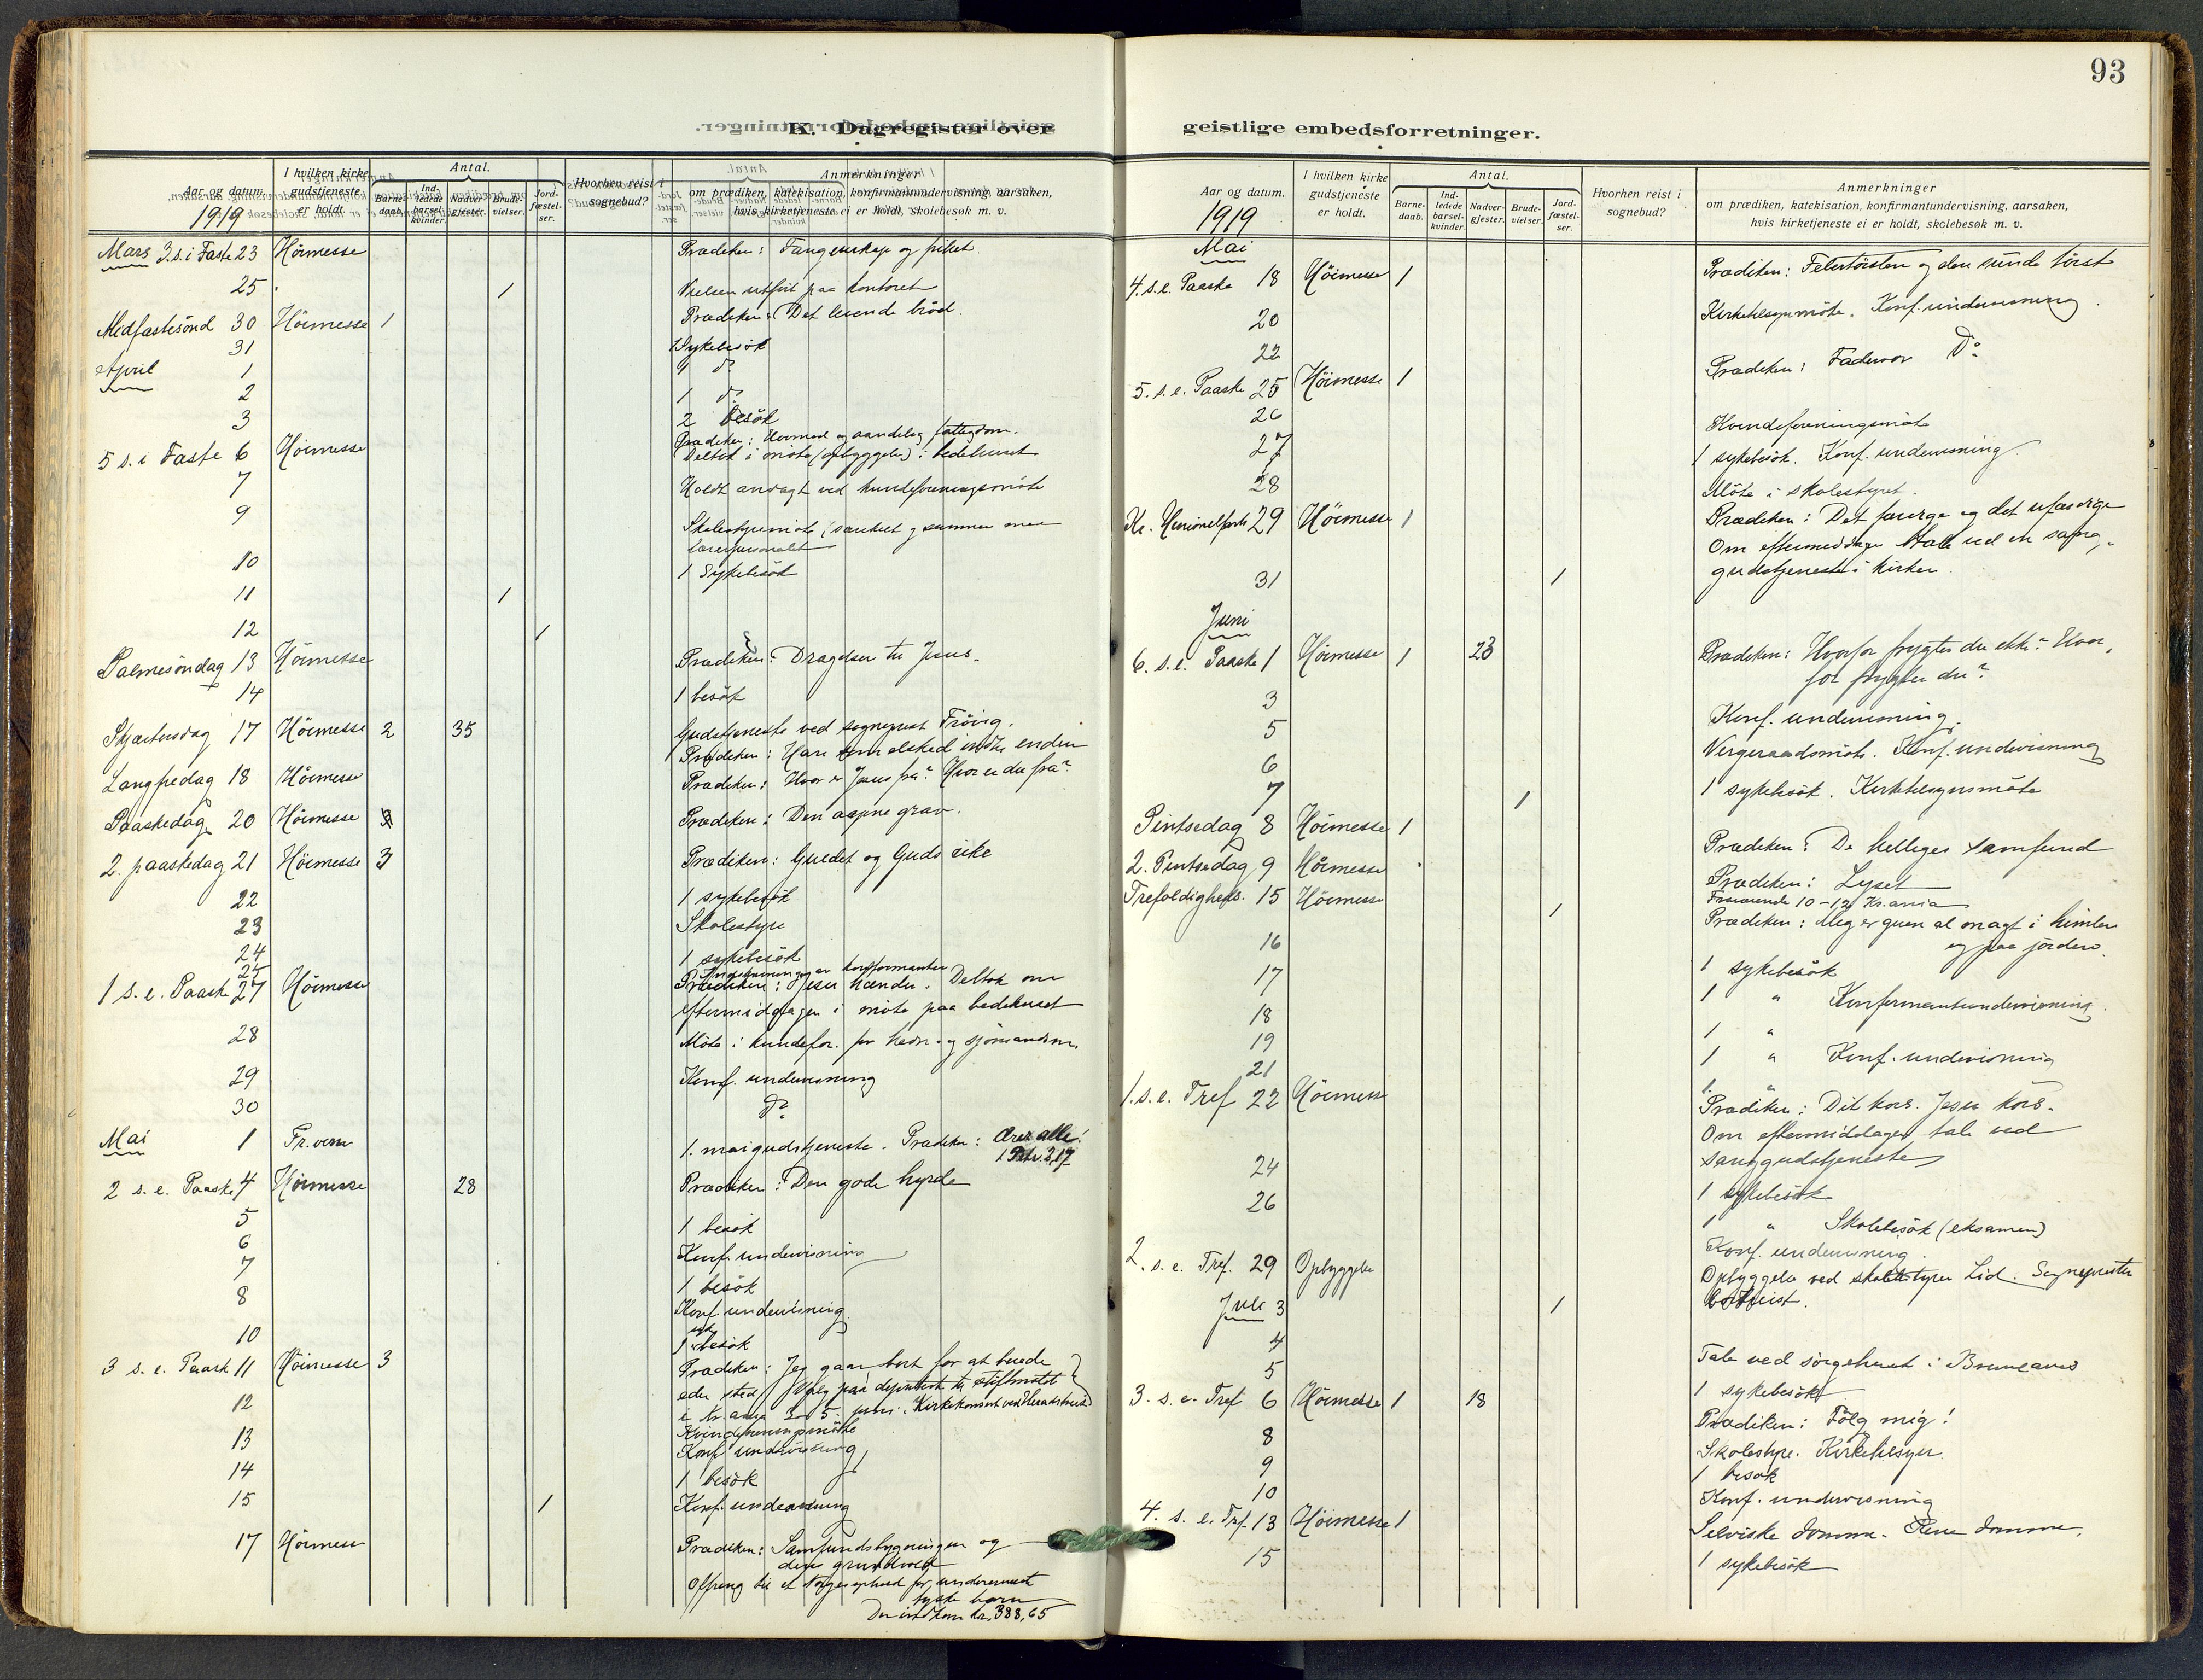 93
K. Dagregister over
geistlige embedsforretninger.
Aar og datum.
1919
I hvilken kirke gudstjeneste er holdt.
Antal.
Barne-daab.
Ind-ledede barsel-kvinder.
Nadver-gjester.
Brude-vielser.
Jord-fæstel-ser.
Hvorhen reist i sognebud?
Anmerkninger
om prædiken, katekisation, konfirmantundervisning, aarsaken,
hvis kirketjeneste ei er holdt, skolebesøk m. v.
Mars 3. s. i Faste 23 Höimesse Prædiken: Fangenskap og frihet
25 1 Vielsen utfört paa kontoret
Midfastesönd 30 Höimesse 1 Prædiken: Det levende bröd.
31 1 Sykebesök
April 1 do
2 1 do
3 2 besök
5 s. i Faste 6 Höimesse Prædiken: Hovmod og aandelig fattigdom.
Deltok i möte (opbyggelse) i bedehuset
7 Holdt andagt ved kvindeforeningsmöte
9 Skolestyremöte særskilt og sammen med
lærerpersonalet
10 1 Sykebesök
11 1
12 1
Palmesöndag 13 Höimesse Prædiken: Dragelsen til Jesus.
14 1 besök
Skjærtorsdag 17 Höimesse 2 35 Gudstjeneste ved sogneprest Frövig.
Prædiken: Han som elsked indtil enden
Langfredag 18 Höimesse Prædiken: Hvor er Jesus fra? Hvor er du fra?
Paaskedag 20 Höimesse Prædiken: Den aapne grav.
2. paaskedag 21 Höimesse 3 Prædiken: Guldet og Guds rike
22 1 sykebesök
23 Skolestyre
24 1 sykebesök
25 Indskrivning av konfirmanter
1 s. e. Paaske 27 Höimesse Prædiken: Jesu hænder. Deltok om
eftermiddagen i möte paa bedehuset
28 Möte i kvindefor. for hedn. og sjömandsm.
29 Konf. undervisning
30 do
Mai 1 Fr.vem 1. mai gudstjeneste. Prædiken: Ærer alle!
1 Petr. 2,17
2 s. e. Paaske 4 Höimesse 28 Prædiken: Den gode hyrde
5 1 besök
6 Konf. undervisning
7 1 besök
8 Konf. undervisning
10 1 syke besök
3 s. e. Paask 11 Höimesse 3 Prædiken: Jeg gaar bort for at berede
eder sted. Valg paa deputert til stiftmötet
12 i Kr.ania 3 og 5. juni. Kirkekonsert ved
Kvindeforeningsmöte
13 Konf. undervisning
14 1 besök
15 1 Konf. undervisning
17 Höimesse Prædiken: Samfundsbygningen og
dens grundvold
Offring til et Norgesophold for underernært
tyske barn
Der indkom kr. 388,65
Aar og datum.
1919
I hvilken kirke gudstjeneste er holdt.
Antal.
Barne-daab.
Ind-ledede barsel-kvinder.
Nadver-gjester.
Brude-vielser.
Jord-fæstel-ser.
Hvorhen reist i sognebud?
Anmerkninger
om prædiken, katekisation, konfirmantundervisning, aarsaken,
hvis kirketjeneste ei er holdt, skolebesøk m. v.
Mai
4. s. e. Paaske 18 Höimesse 1 Prædiken: Febertörsten og den sunde törst
20 Kirketilsynsmöte. Konf. undervisning.
22 Do
5. s. e. Paaske 25 Höimesse 1 Prædiken: Fadervor
26 Kvindeforeningsmöte
27 1 sykebesök. Konf. undervisning.
28 Möte i skolestyret.
Kr. Himmelfarts 29 Höimesse 1 Prædiken: Det færdige og det ufærdige
Om eftermiddagen tale ved en sang-
gudstjeneste i kirken.
31 1
Juni
6. s. e. Paaske 1 Höimesse 1 23 Prædiken: Hvorfor frygter du ikke? Hvor-
for frygter du?
3 Konf. undervisning.
5 Vergeraadsmöte. Konf. undervisning
6 1 sykebesök. Kirketilsynsmöte
7 1
Pintsedag 8 Höimesse 1 Prædiken: De helliges samfund
2. Pintsedag 9 Höimesse Prædiken: Lyset
Fraværende 10-12 Kr.ania
Trefoldigheds. 15 Höimesse 1 Prædiken: Mig er given al magt i himlen
og paa jorden.
16 1 sykebesök
17 1 " Konfirmantundervisning.
18 1 "
19 1 " Konf. undervisning
21 1. "
1. s. e. Tref 22 Höimesse Prædiken: Dit kors. Jesu kors.
Om eftermiddagen tale ved
sanggudstjeneste
24 1 sykebesök
26 1 " Skolebesök (eksamen)
Konf. undervisning.
2. s. e. Tref. 29 Opbyggelse Opbyggelse ved skolebestyrer Lid. Sogneprest
bortreist.
Juli 3 1
4 Tale ved sörgehuset i Brunlanes
5 1 sykebesök
3. s. e. Tref 6 Höimesse 1 18 Prædiken: Fölg mig!
8 Skolestyre. Kirketilsyn.
9 1 besök
10 Konf. undervisning
4. s. e. Tref. 13 Höimesse 1 Selviske domme. Rene domme.
15 1 sykebesök